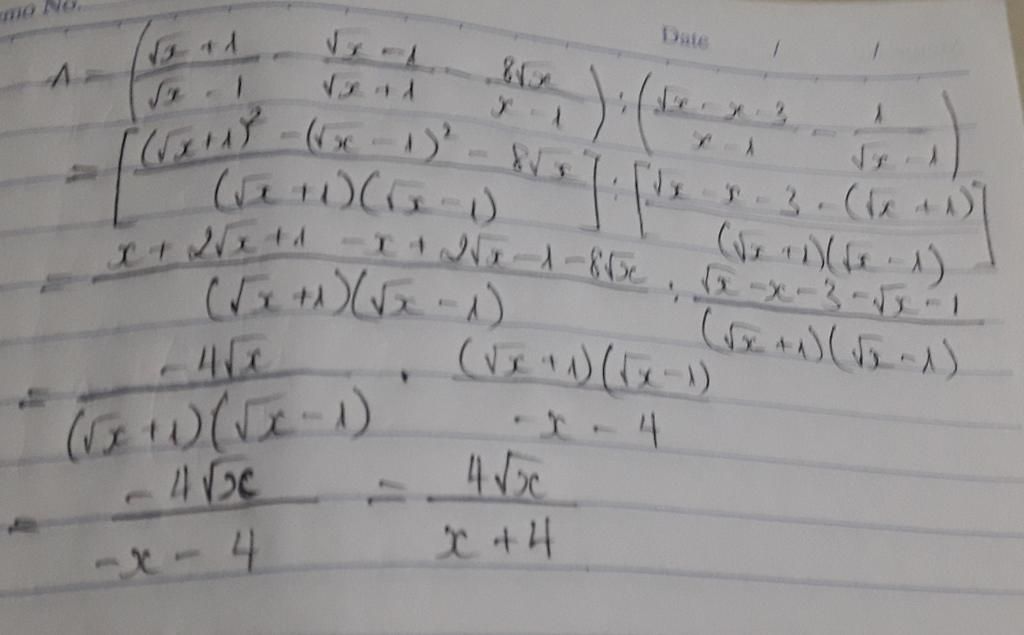 mo No.
Date / /
A = ((√x + 1)/(√x - 1) - (√x - 1)/(√x + 1) - 8√x/(x - 1)) : ((√x - x - 3)/(x - 1) - 1/(√x - 1))
= [((√x + 1)² - (√x - 1)² - 8√x)/((√x + 1)(√x - 1))] : [(√x - x - 3 - (√x + 1))/((√x + 1)(√x - 1))]
= (x + 2√x + 1 - x + 2√x - 1 - 8√x)/((√x + 1)(√x - 1)) : (√x - x - 3 - √x - 1)/((√x + 1)(√x - 1))
= (-4√x)/((√x + 1)(√x - 1)) . ((√x + 1)(√x - 1))/(-x - 4)
= (-4√x)/(-x - 4) = (4√x)/(x + 4)